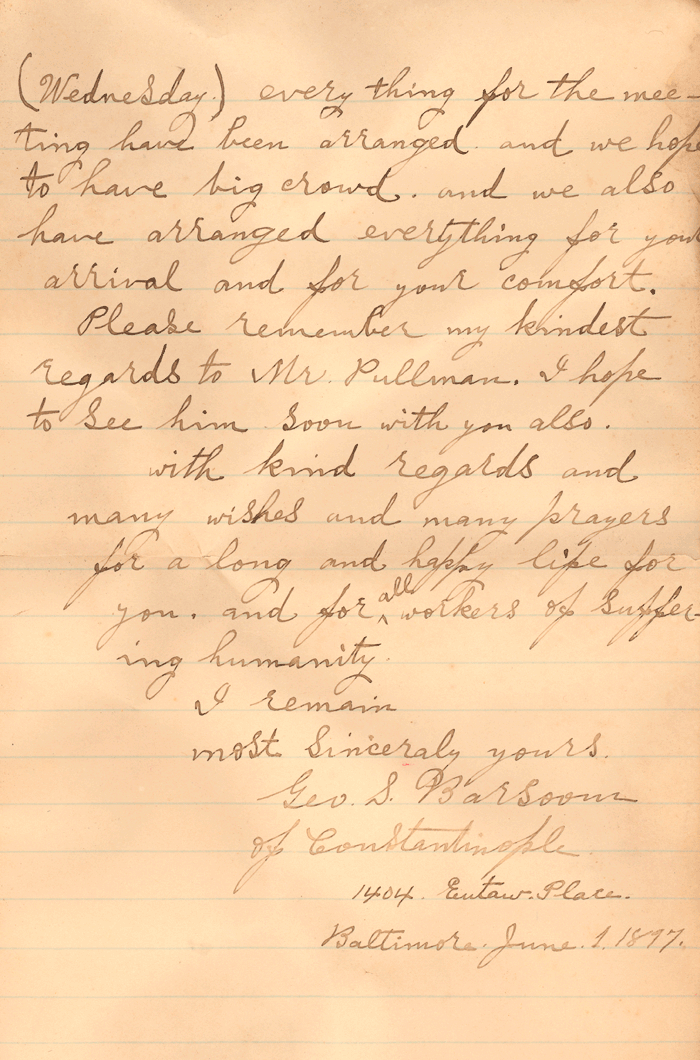 (Wednesday.) every thing for the mee-
ting have been arranged. and we hope
to have big crowd. and we also
have arranged everything for your
arrival and for your comfort.
Please remember my kindest
regards to Mr. Pullman. I hope
to see him soon with you also.
with kind regards and
many wishes and many prayers
for a long and happy life for
you. and for all workers of suffer-
ing humanity.
I remain
most Sinceraly yours.
Geo. S. Barsoom
of Constantinople
1404. Eutaw. Place.
Baltimore. June. 1. 1897.